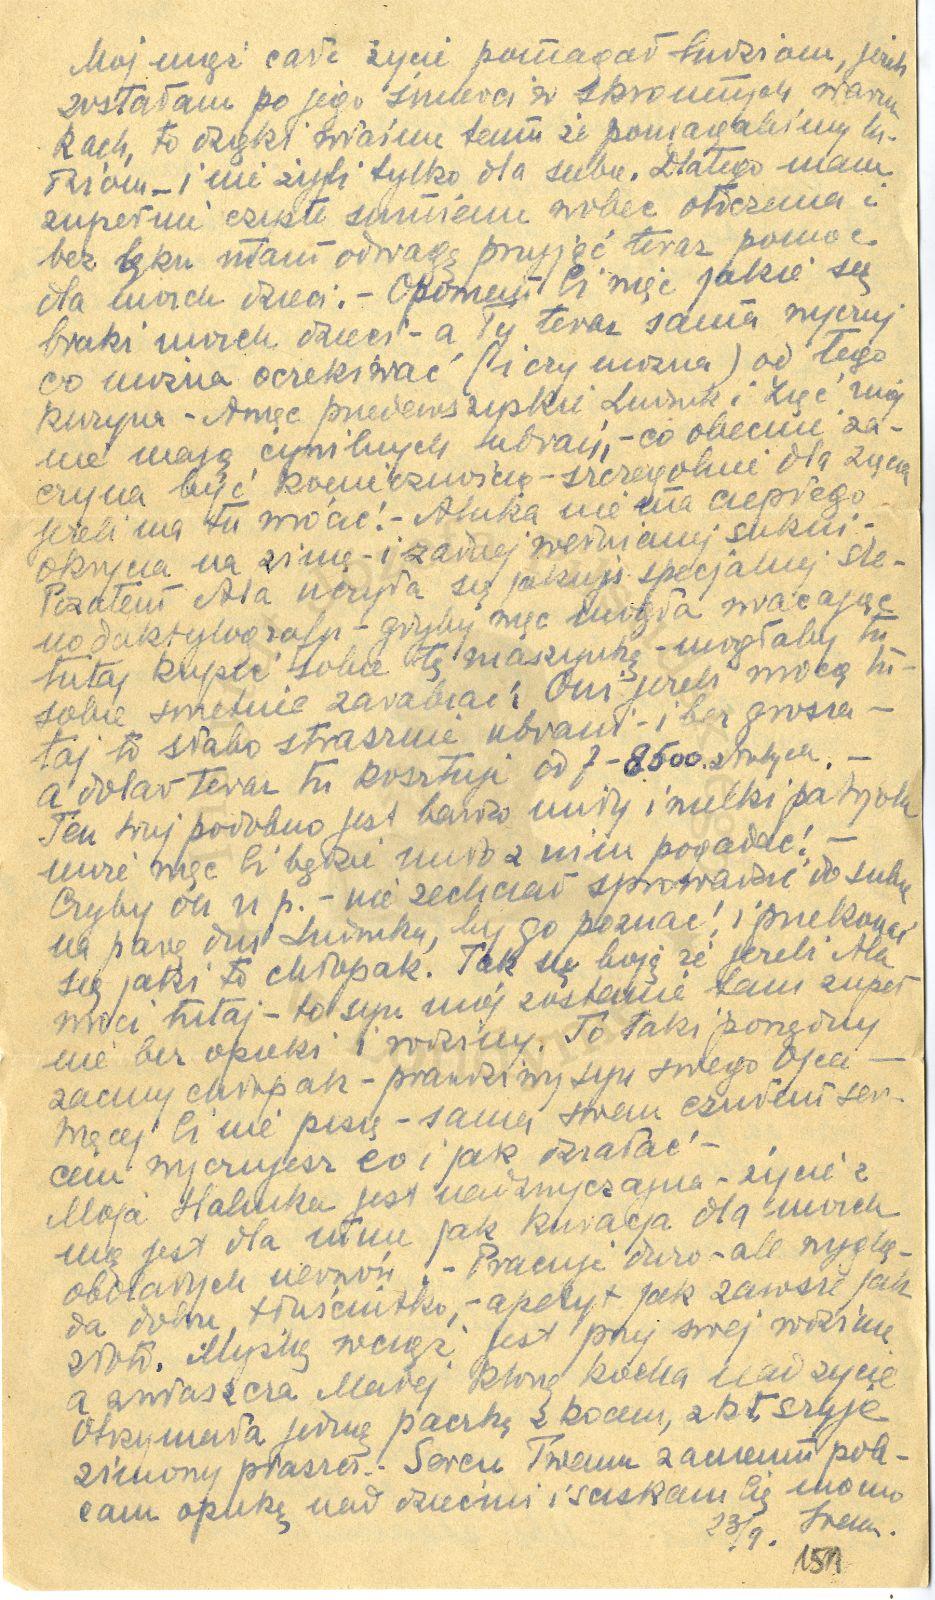 Mój mąż całe życie pomagał ludziom, jeżeli
zostałam po jego śmierci w skromnych warun
kach, to dzięki właśnie temu że pomagaliśmy lu-
dziom – i nie żyli tylko dla siebie. Dlatego mam
zupełnie czyste sumienie wobec otoczenia i
bez lęku mam odwagę przyjąć teraz pomoc
dla moich dzieci. – Opowiem Ci więc jakie są
braki moich dzieci – a Ty teraz sama wyczuj
co można oczekiwać (i czy można) od tego
kuzyna – A więc przedewszystkie Ludwik i Zięć mój
nie mają cywilnych ubrań, – co obecnie za-
czyna być koniecznością – szczególnie dla zięcia
jeżeli ma tu wrócić! – Alinka nie ma ciepłego
okrycia na zimę – i żadnej wełnianej sukni –
Pozatem Ala uczyła się jakiejś specjalnej ste-
nodaktylografji – gdyby więc mogła wracając
tutaj kupić sobie tę maszynkę – mogłaby tu
sobie świetnie zarabiać! Oni jeżeli wrócą tu-
taj to słabo strasznie ubrani – i bez grosza –
a dolar teraz tu kosztuje od 7 – 8.500 złotych. –
Ten stryj podobno jest bardzo miły i wielki patryota
może więc Ci będzie miło z nim pogadać! –
Czyby on n p. – nie zechciał sprowadzić do siebie
na parę dni Ludwika, by go poznać! i przekonać
się jaki to chłopak. Tak się boję że jeżeli Ala
wróci tutaj – to syn mój zostanie tam zupeł
nie bez opieki i rodziny. To taki porządny
zacny chłopak – prawdziwy syn swego Ojca –
Więcej Ci nie piszę – sama swem czułem ser-
cem wyczujesz co i jak działać –
Moja Halinka jest nadzwyczajna – życie z
nią jest dla mnie jak kuracja dla moich
obolałych nerwów. – Pracuje dużo – ale wyglą-
da dobrze, tłuściutko, – apetyt jak zawsze jak
złoto. Myszką wciąż jest przy swej rodzinie
a zwłaszcza Małej którą kocha nad życie
Otrzymała jedną paczkę z kocem, z kt. szyje
zimowy płaszcz. – Sercu Twemu zacnemu pole-
cam opiekę nad dziećmi i ściskam Cię mocno
23/9.
151